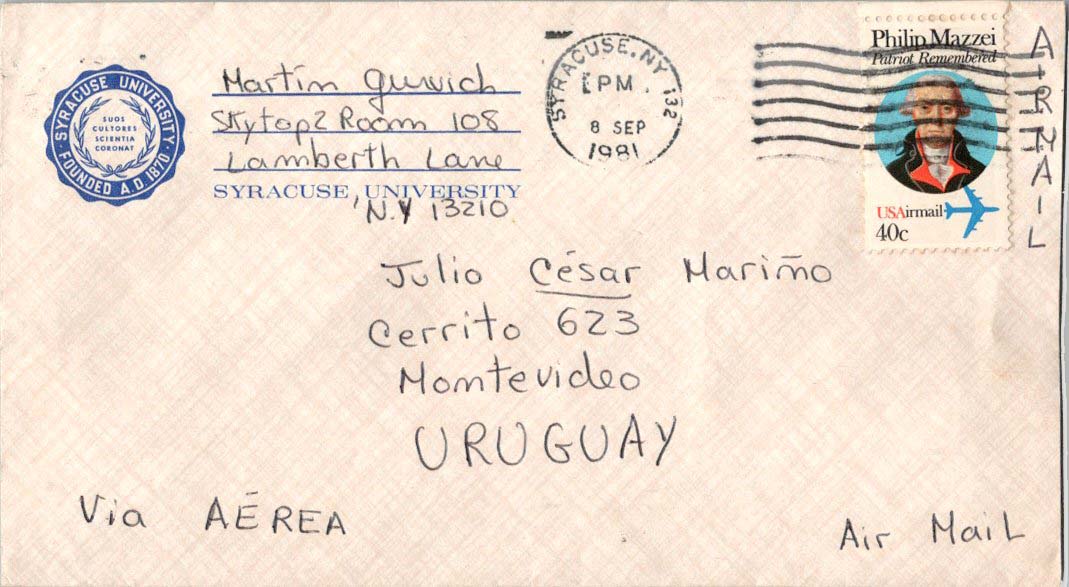 SYRACUSE UNIVERSITY
FOUNDED A.D. 1870
SUOS
CULTORES
SCIENTIA
CORONAT
Martín
Skytop 2 Room 108
Lamberth Lane
SYRACUSE UNIVERSITY
N.Y 13210
SYRACUSE, NY 132
PM
8 SEP
1981
Philip Mazzei
Patriot Remembered
USAirmail
40c
AIRMAIL
Julio César Mariño
Cerrito 623
Montevideo
URUGUAY
Via AÉREA
Air Mail